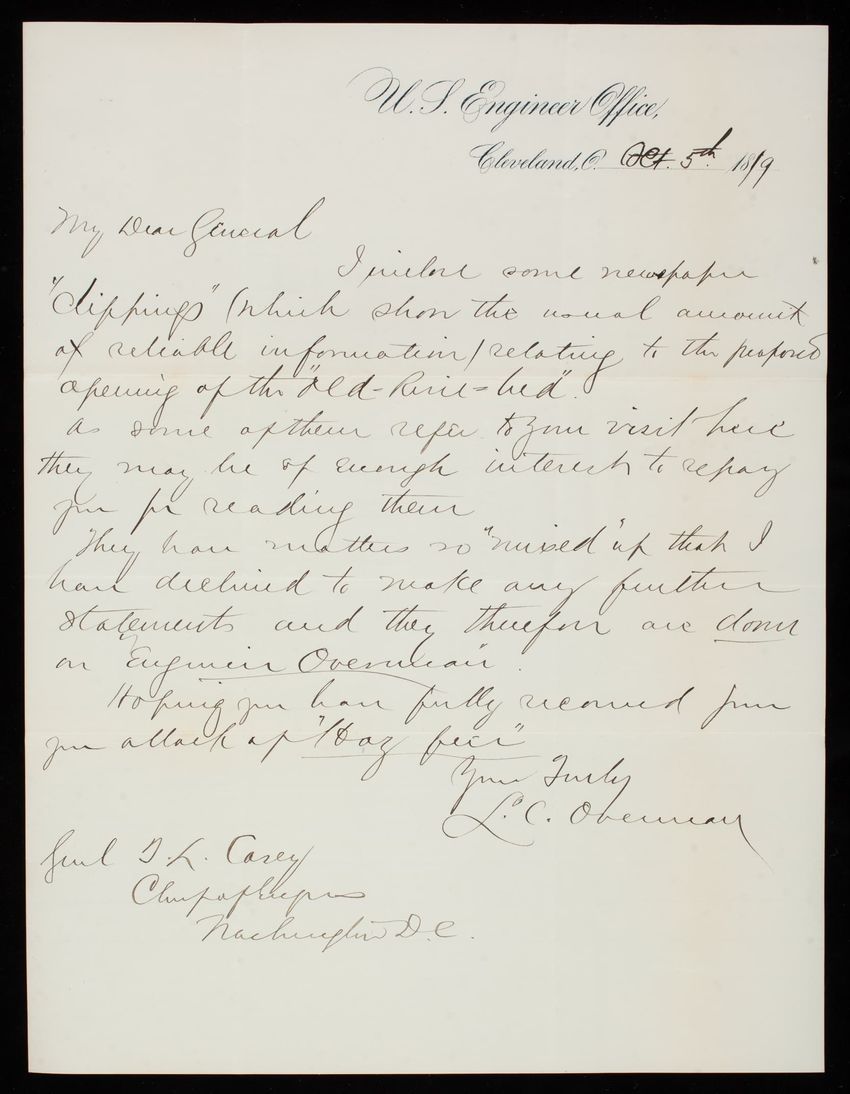 U. S. Engineer Office,
Cleveland, O. Oct. 5th 1889
My Dear General
I inclose some newspaper
"Clippings" (which show the usual amount
of reliable information) relating to the proposed
opening of the "Old-River=bed".
As some of them refer to your visit here
they may be of enough interest to repay
you for reading them
They have matters so "mixed" up that I
have declined to make any further
statements and they therefore are down
on "Engineer Overman".
Hoping you have fully recovered from
your attack of "Hay fever"
Yours Truly
L. C. Overman
Genl T. L. Casey
Chief of Engrs
Washington D.C.